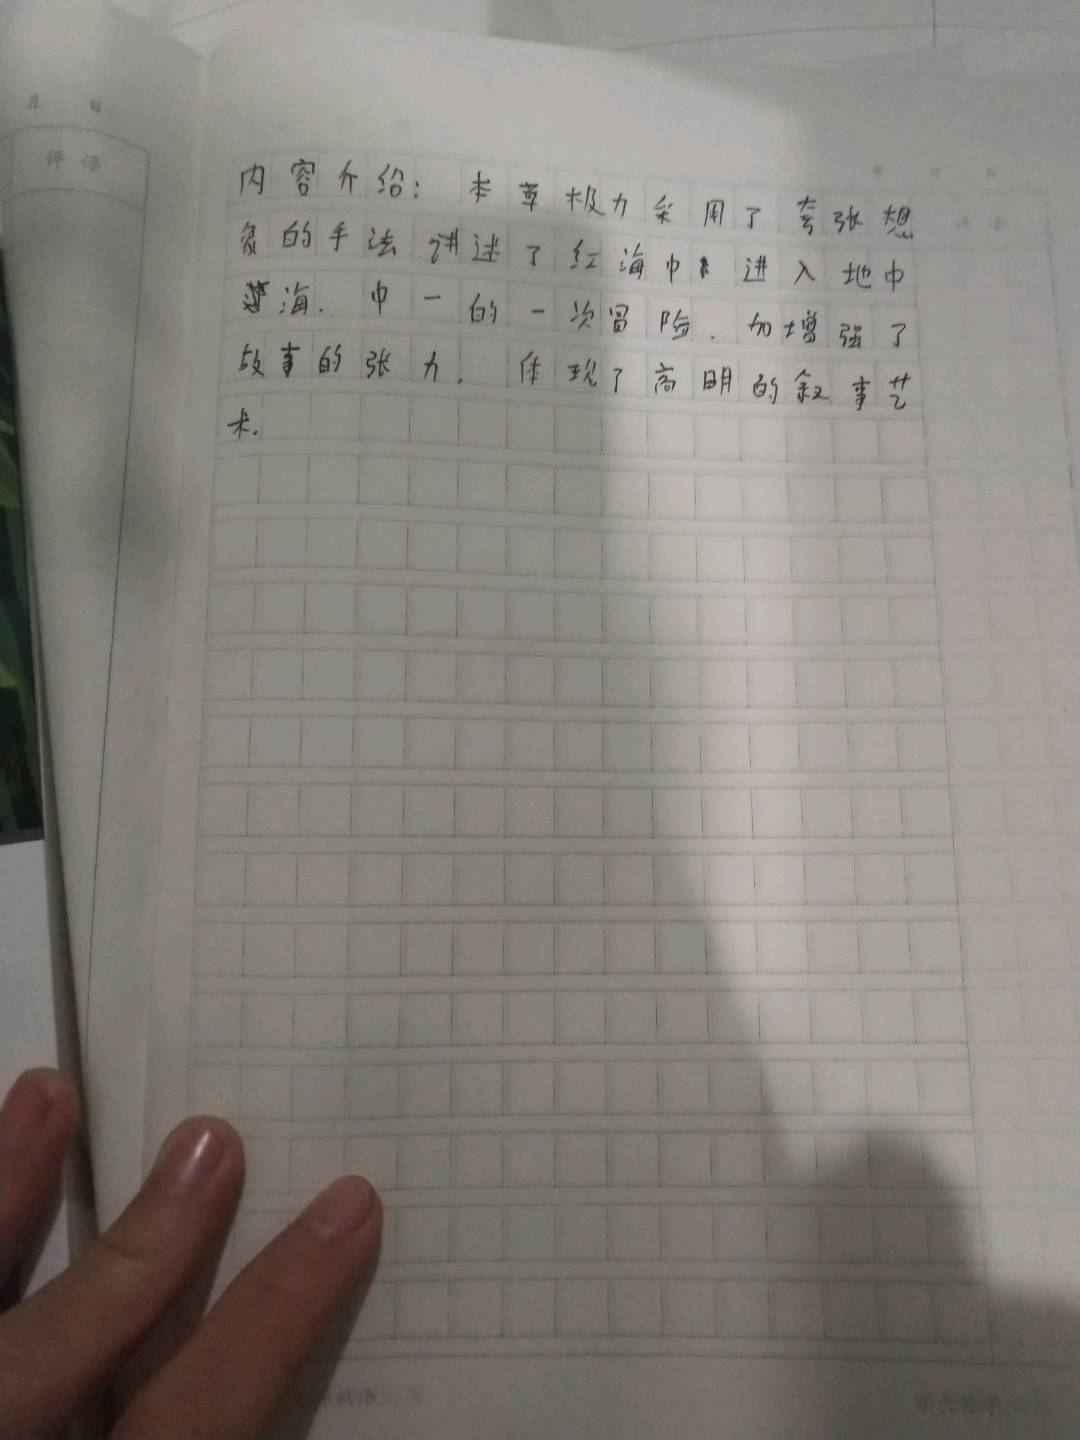 月 日
评 语
年 月 日
评 语
内容介绍：本章极力采用了夸张想
象的手法讲述了红海中 进入地中
海.中一的一次冒险.加增强了
故事的张力.体现了高明的叙事艺
术.